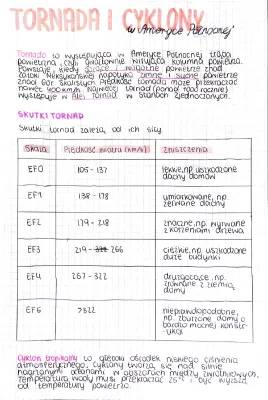 TORNADA I CYKLONY
w Ameryce Północnej
Tornado to występująca w Ameryce Północnej trąba
powietrzna, czyli gwałtownie wirująca kolumna powietrza.
Powstaje, kiedy gorące i wilgotne powietrze znad
Zatoki Meksykańskiej napotyka zimne i suche powietrze
znad Gór Skalistych. Prędkość tornada może przekraczać
nawet 400 km/h. Najwięcej tornad (ponad 1000 rocznie)
występuje w Alei Tornad w Stanach Zjednoczonych.
SKUTKI TORNAD
Skutki tornad zależą od ich siły.
Skala Prędkość wiatru (km/h) Zniszczenia
EF0 105 - 137 lekkie, np. uszkodzone
dachy domów
EF1 138 - 178 umiarkowane, np.
zerwane dachy
EF2 179 - 218 znaczne, np. wyrwane
z korzeniami drzewa
EF3 219 - 266 ciężkie, np. uszkodzone
duże budynki
EF4 267 - 322 druzgocące, np.
zrównane z ziemią
domy
EF5 >322 nieprawdopodobne,
np. zburzone domy o
bardzo mocnej konstr-
ukcji
Cyklon tropikalny to głęboki ośrodek niskiego ciśnienia
atmosferycznego. Cyklony tworzą się nad silnie
nagrzanymi oceanami w obszarach między zwrotnikowych.
Temperatura wody musi przekraczać 26°C i być wyższa
od temperatury powietrza.